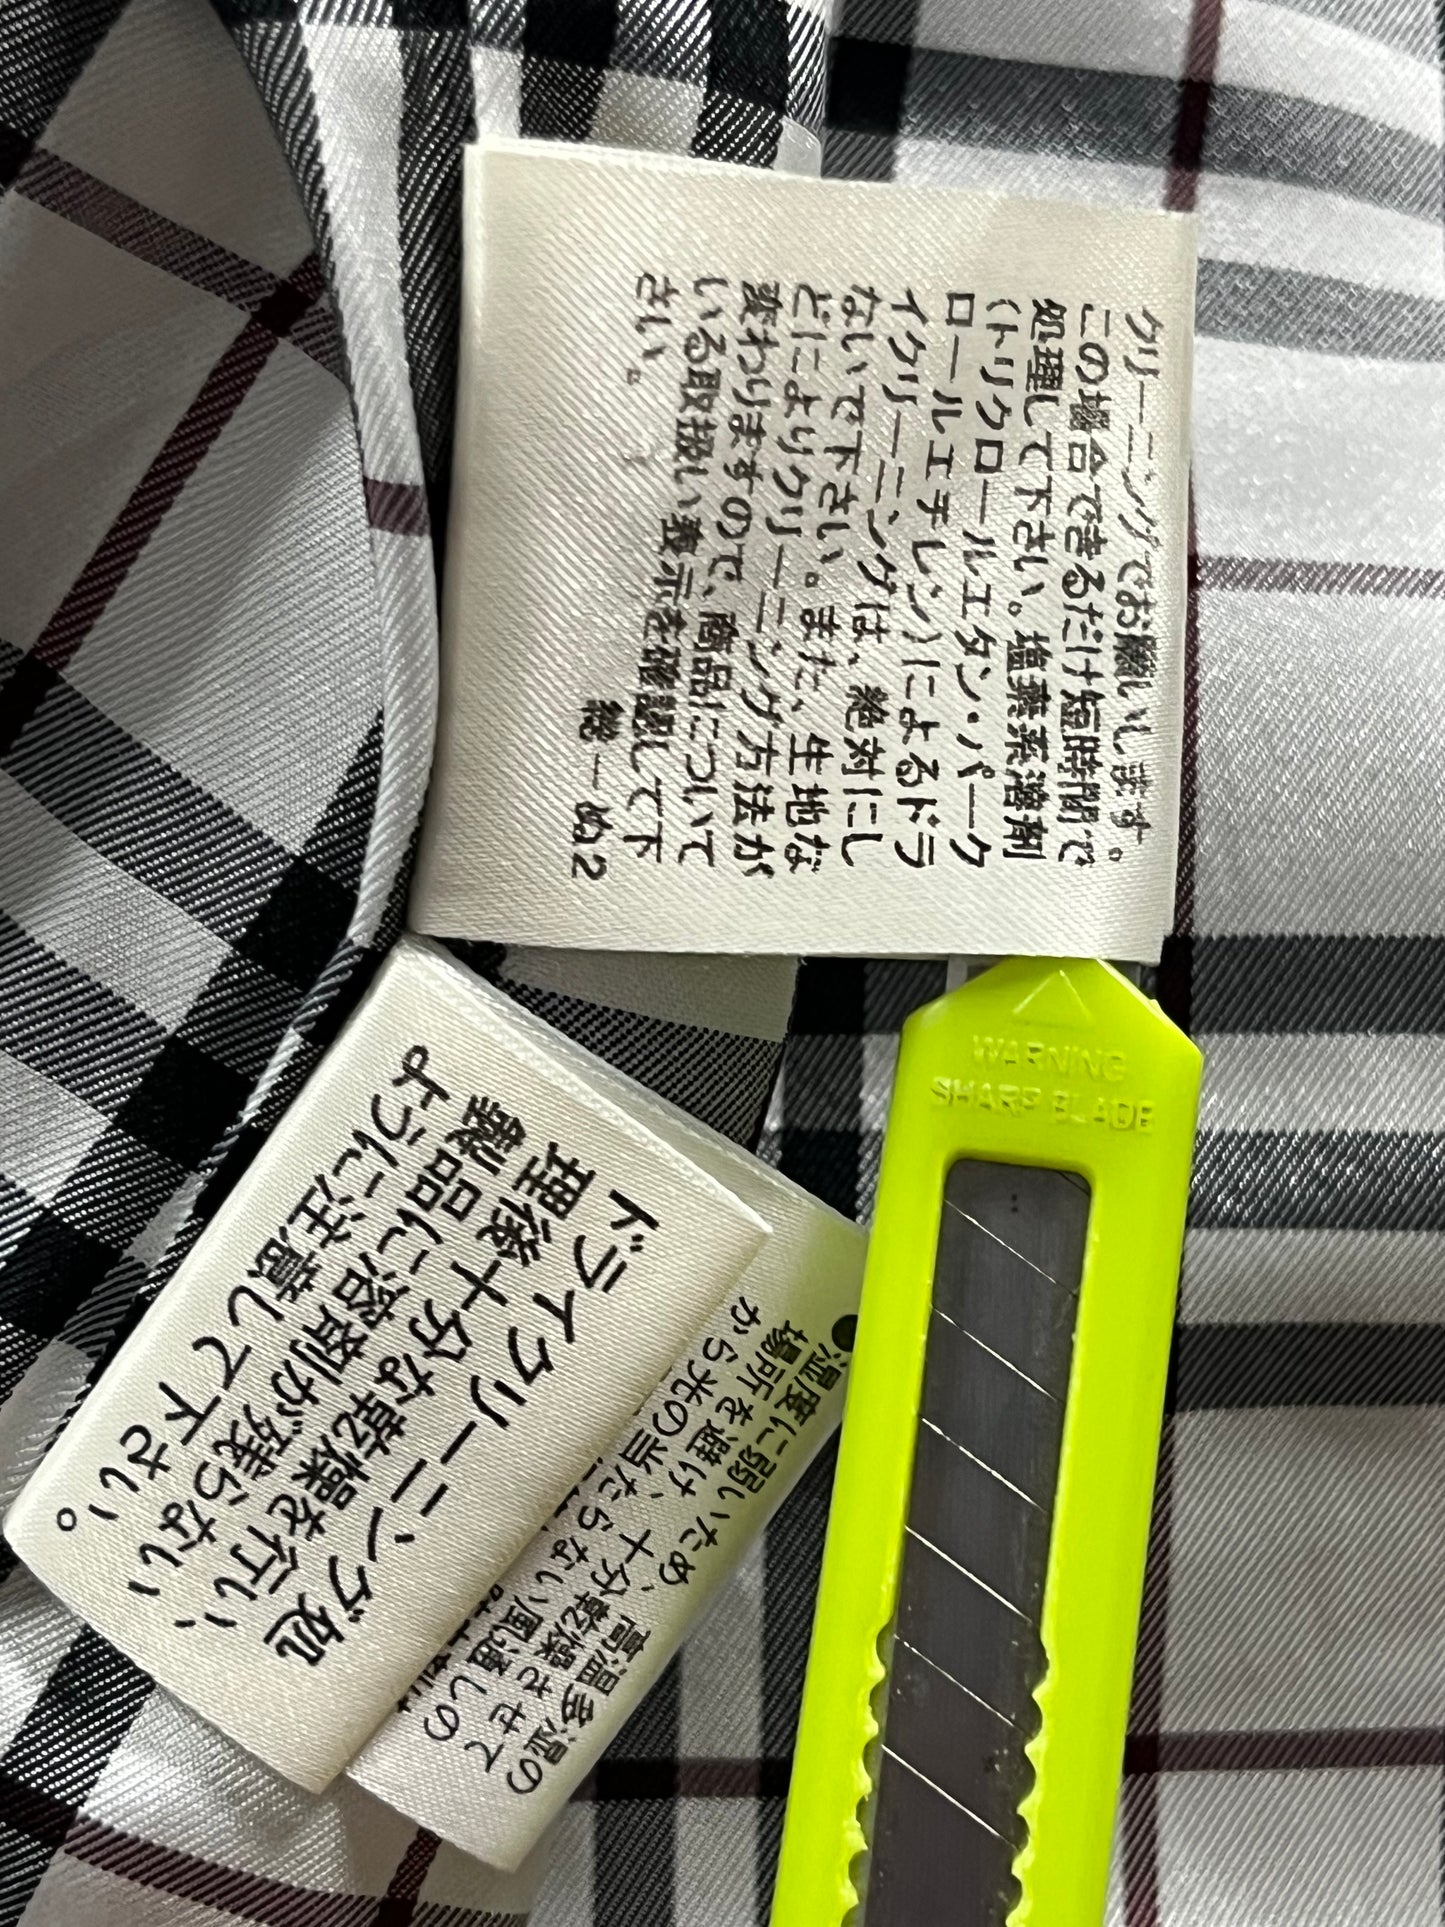 クリーニングでお願いします。
この場合できるだけ短時間で
処理して下さい。塩素系溶剤
(トリクロールエタン・パーク
ロールエチレン)によるドラ
イクリーニングは、絶対にし
ないで下さい。また、生地な
どによりクリーニング方法が
変わりますので、商品について
いる取扱い表示を確認して下
さい。
総一ぬ2
ドライクリーニング処
理後十分な乾燥を行い、
製品に溶剤が残らない
ように注意して下さい。
●湿度に弱いため、高温多湿の
場所を避け、十分乾燥させて
から光の当たらない風通しの
WARNING
SHARP BLADE